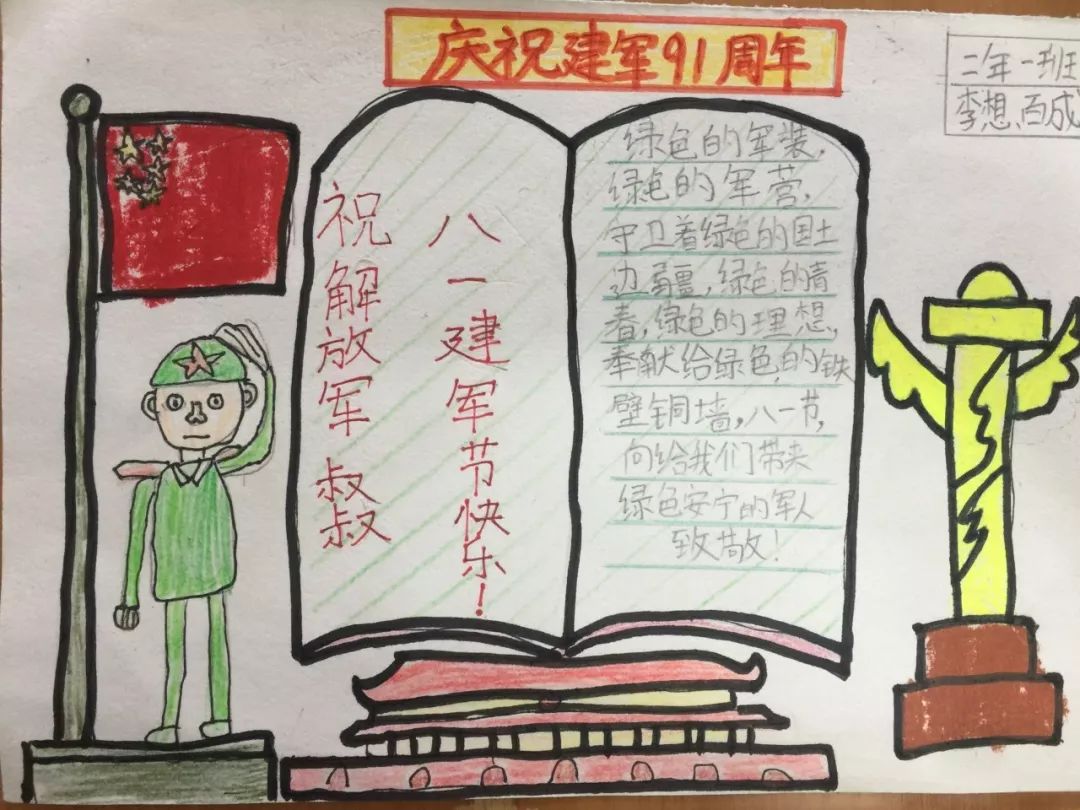 庆祝建军91周年
二年一班
李想、百成
祝解放军叔叔
八一建军节快乐！
绿色的军装，
绿色的军营，
守卫着绿色的国土
边疆，绿色的青
春，绿色的理想，
奉献给绿色的铁
壁铜墙，八一节，
向给我们带来
绿色安宁的军人
致敬！